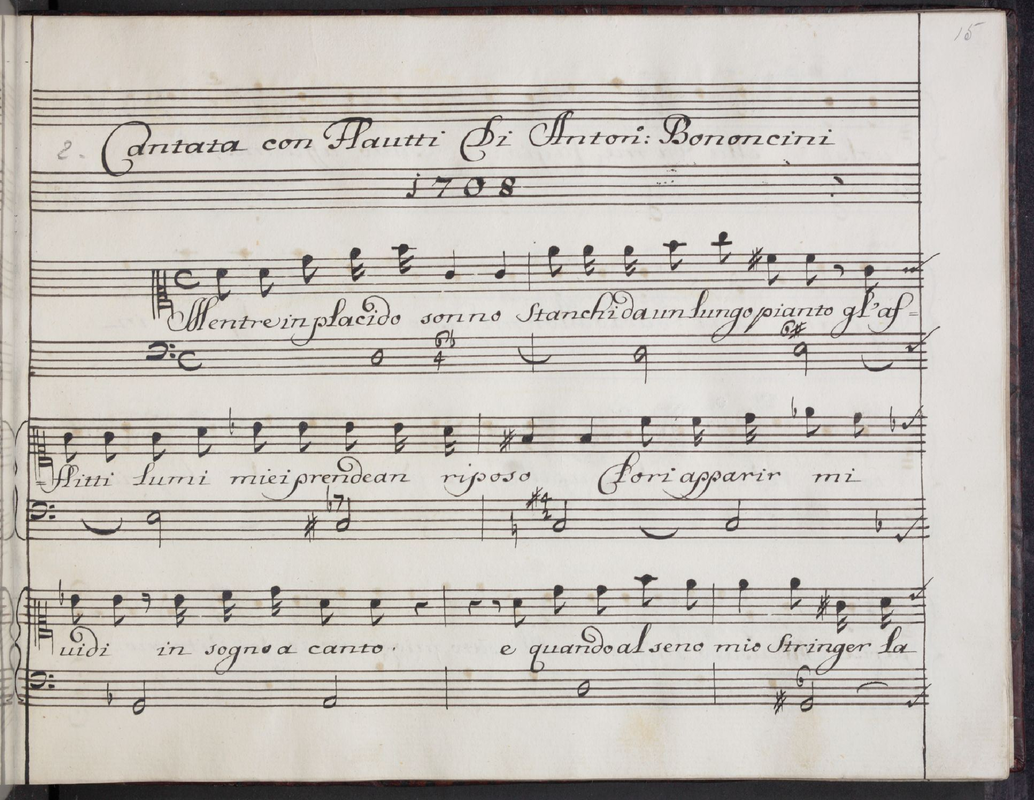 15
2. Cantata con Flautti Di Anton.o: Bononcini
1708
Mentre in placido sonno Stanchi da un lungo pianto gl'af=
flitti lumi miei prendean riposo Clori apparir mi
uidi in sogno a canto e quando al seno mio Stringer la